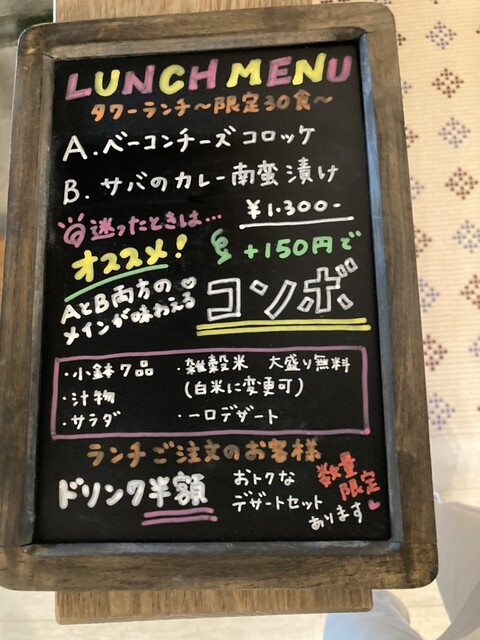 LUNCH MENU
タワーランチ～限定30食～
A.ベーコンチーズコロッケ
B.サバのカレー南蛮漬け
¥1.300-
迷ったときは…
オススメ! +150円で
AとB両方の♡
メインが味わえる
コンボ
・小鉢7品 ・雑穀米 大盛り無料
・汁物 (白米に変更可)
・サラダ ・一口デザート
ランチご注文のお客様
ドリンク半額
おトクな
デザートセット
数量
限定
あります♥